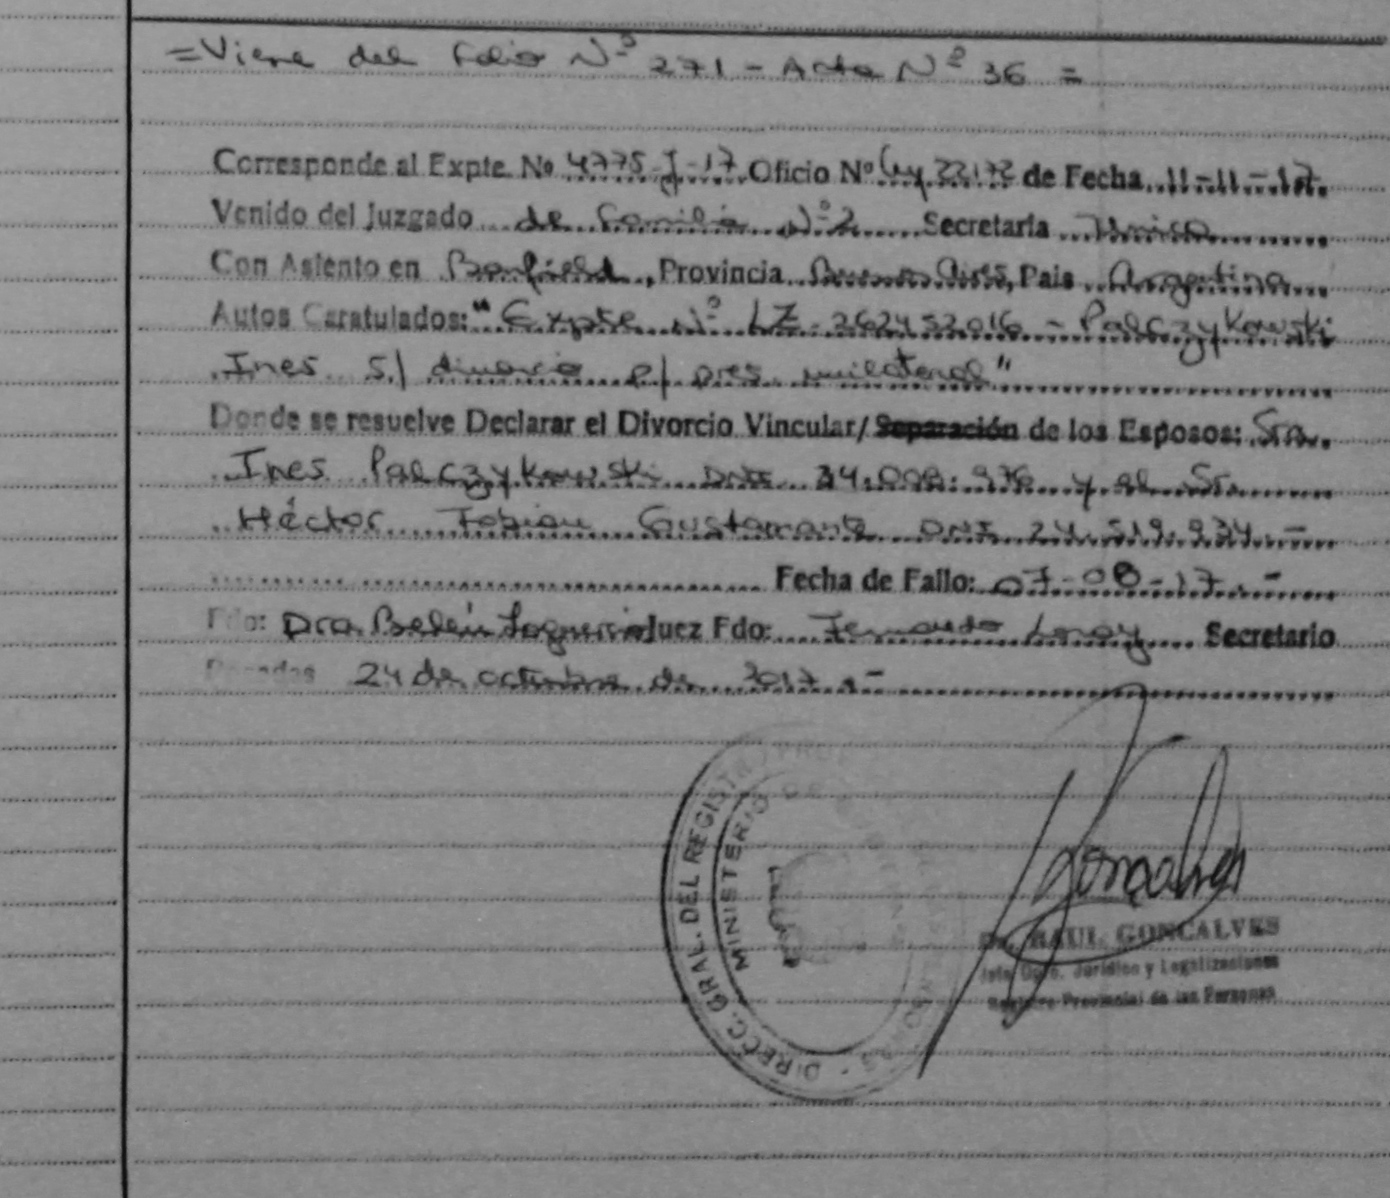 =Viene del Folio Nº 271 - Acta Nº 36 =
Corresponde al Expte. No 4775-J-17 Oficio Nº Ley 22172 de Fecha 11-11-17.
Venido del Juzgado de Familia Nº 2 Secretaria Unica
Con Asiento en Banfield, Provincia Buenos Aires, Pais Argentina
Autos Caratulados: "Expte Nº LZ-262452016 - Palczykowski
Ines s/ divorcio p/ pres. unilateral"
Donde se resuelve Declarar el Divorcio Vincular/Separación de los Esposos: Sra.
Ines Palczykowski DNI 34.008.976 y el Sr.
Héctor Fabian DNI 24.519.934.-
Fecha de Fallo: 07-08-17.-
Fdo: Dra. Belén Juez Fdo: Fernando Secretario
Posadas 24 de octubre de 2017.-
DIRECC. GRAL. DEL REGISTRO PROV. PERSONAS
MINISTERIO DE
Goncalves
Dr. RAUL GONCALVES
Jefe Dpto. Jurídico y Legalizaciones
Registro Provincial de las Personas